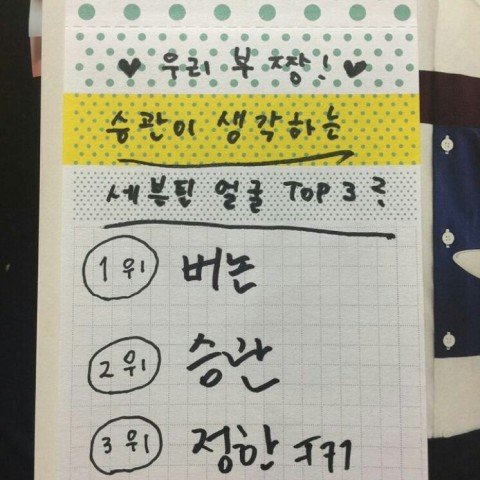 ♥ 우리 부장! ♥
승관이 생각하는
세븐틴 얼굴 TOP 3 는?
1위 버논
2위 승관
3위 정한